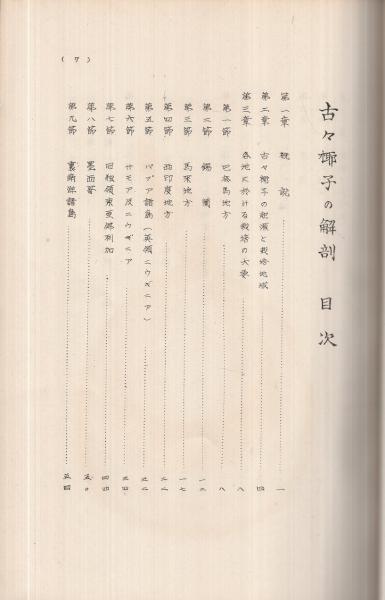 古々椰子の解剖 目次
第一章 概説 一
第二章 古々椰子の起源と栽培地域 四
第三章 各地に於ける栽培の大要 八
第一節 巴奈馬地方 八
第二節 錫蘭 一二
第三節 馬来地方 一七
第四節 西印度地方 二一
第五節 パプア諸島(英領ニウギニア) 三二
第六節 サモア及ニウギニア 三四
第七節 旧独領東亜弗利加 四四
第八節 墨西哥 五〇
第九節 裏南洋諸島 五四
(7)